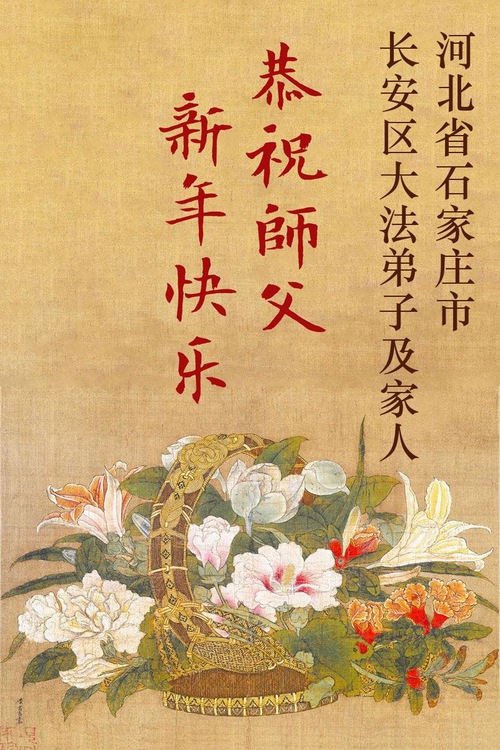 河北省石家庄市
长安区大法弟子及家人
恭祝師父
新年快乐